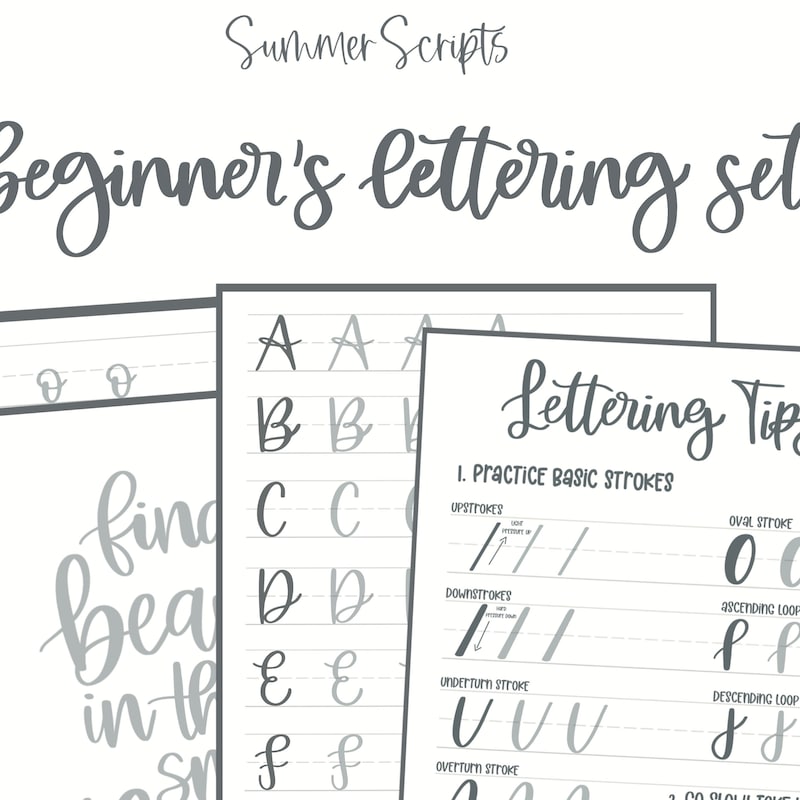 Summer Scripts
beginner's lettering set
o o
find
beau
in the
sm
A A A A
B B B
C C C
D D D
E E
F F
Lettering Tips
1. PRACTICE BASIC STROKES
UPSTROKES
LIGHT
PRESSURE UP
OVAL STROKE
DOWNSTROKES
HARD
PRESSURE DOWN
ASCENDING LOOP
UNDERTURN STROKE
DESCENDING LOOP
OVERTURN STROKE
2. GO SLOW